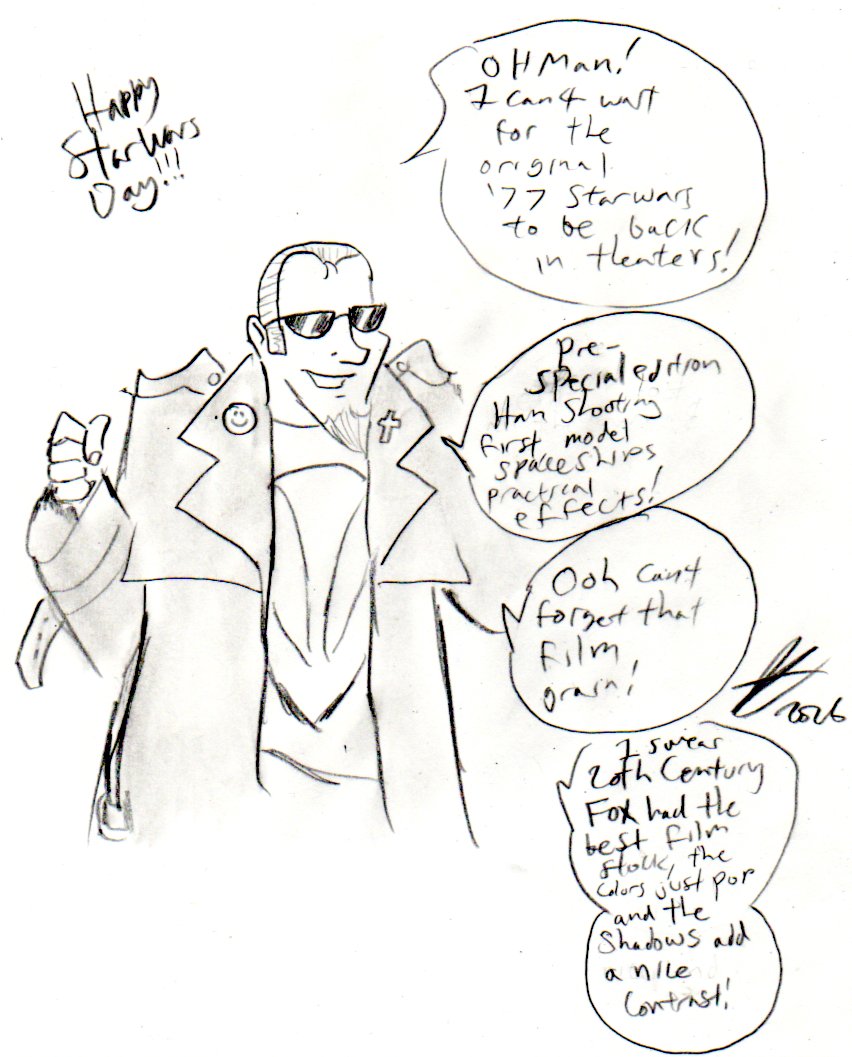 Happy
Star Wars
Day!!!
OH Man!
I can't wait
for the
original
'77 Starwars
to be back
in theaters!
Pre-
Special edition
Han Shooting
first model
spaceships
practical
effects!
Ooh can't
forget that
film
grain!
2026
I swear
20th Century
Fox had the
best film
stock, the
colors just pop
and the
Shadows add
a nice
contrast!